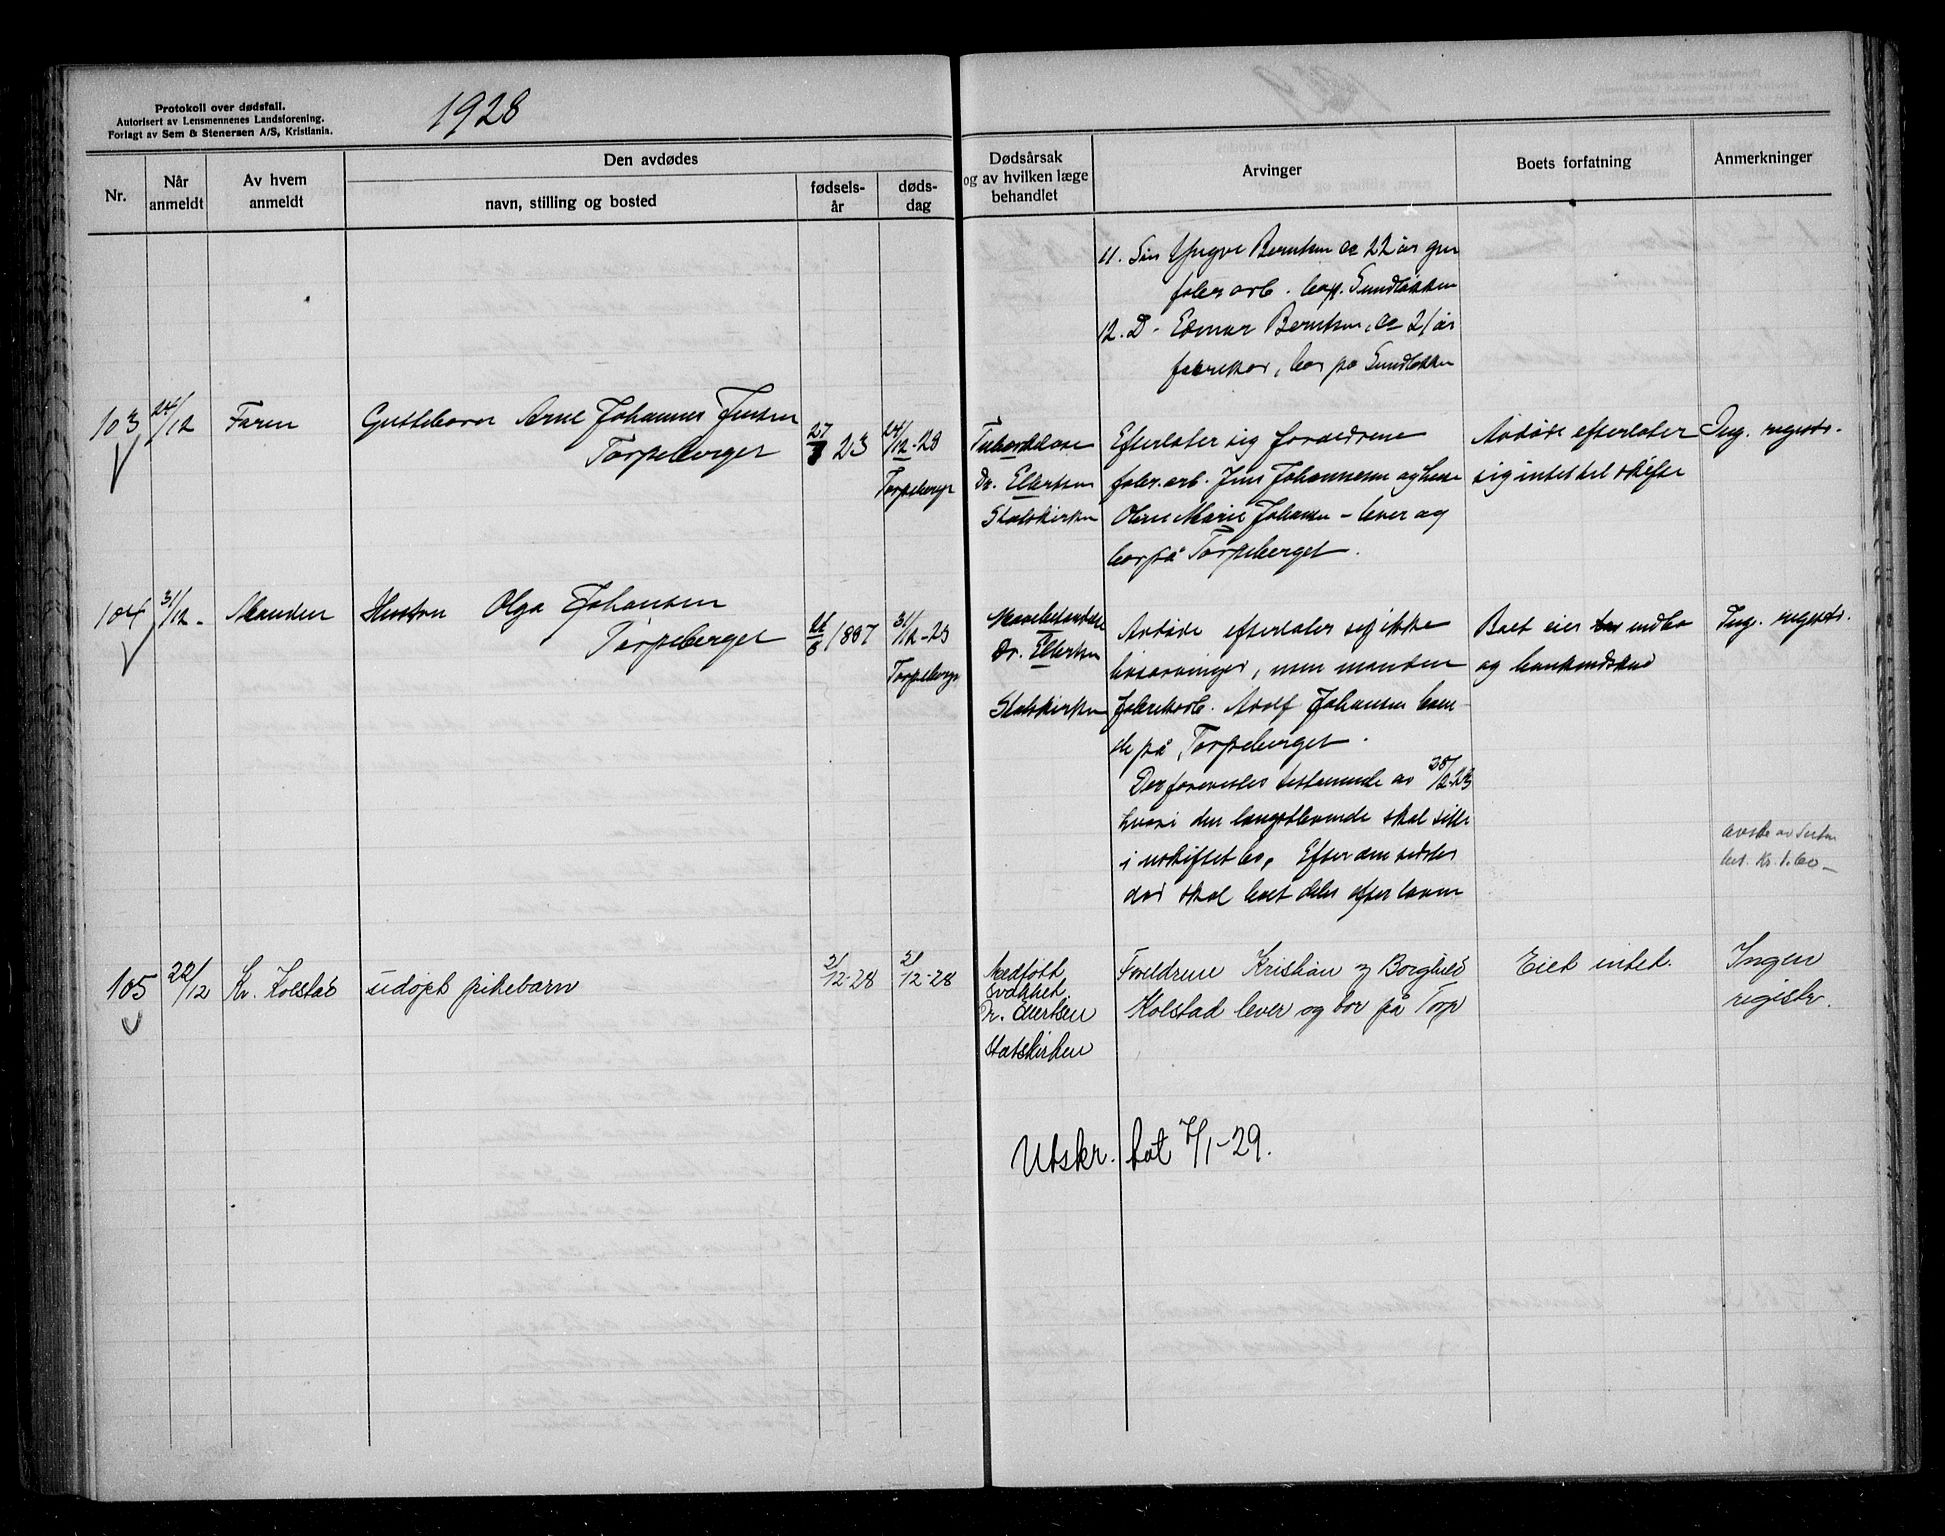 Protokoll over dødsfall.
Autorisert av Lensmennenes Landsforening.
Forlagt av Sem & Stenersen A/S, Kristiania.
1928
Nr.
Når anmeldt
Av hvem anmeldt
Den avdødes
navn, stilling og bosted
fødsels-år
døds-dag
Dødsårsak og av hvilken læge behandlet
Arvinger
Boets forfatning
Anmerkninger
11. Søn Yngve Berntsen ca 22 år gm
fabr arb. bop. Sundløkken
12. D- Berntsen, ca 21 år
bor på Sundløkken
103
24/12
Faren
Guttebarn Arne Johannes Jensen
Torpeberget
27
7 23
24/12-28
Torpeberget
Tuberkulose
Dr. Ellertsen
Statskirken
Efterlater sig forældrene
fabr.arb. Jens Johannesen og
Marie Johansen - lever og
bor på Torpeberget.
Avdøde efterlater
sig intet til skifte
Ing. registr.
104
31/12-
Manden
Hustru Olga Johansen
Torpeberget
31/12-28
Torpeberg
Dr. Ellertsen
Statskirken
Avdøde efterlater sig ikke
livsarvinger, men manden
fabrikarb. Adolf Johansen boen-
de på Torpeberget.
Der forevistes testamente av
hvori den længstlevende skal sitte
i uskiftet bo. Efter den sidstes
død skal boet deles efter loven
Boet eier indbo
og
Ing. registr.
Kr. 1.60-
105
22/12
Kr. Kolstad
udøpt pikebarn
21/12-28
21/12-28
Medfødt
svakhet
Dr. Ellertsen
Statskirken
Foreldrene Kristian og Borghild
Kolstad lever og bor på Torp
Eiet intet.
Ingen
registr.
Utskr. tat 7/1-29.